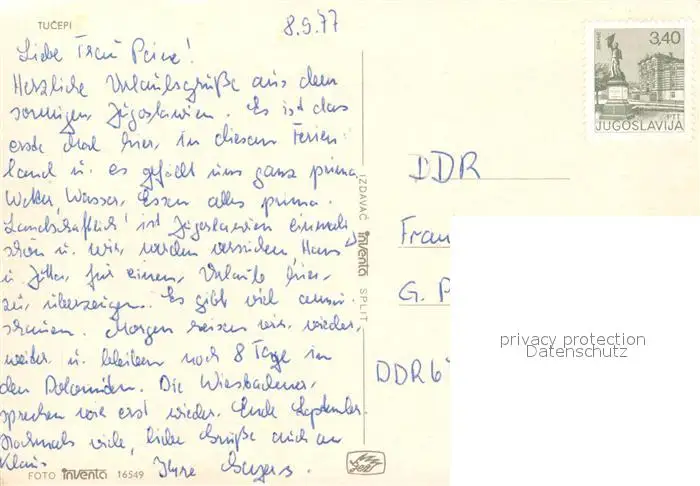 TUČEPI
8.9.77
Liebe Frau
Herzliche Urlaubsgrüße aus dem
sonnigen Jugoslawien. Es ist das
erste Mal hier, in diesem Ferien-
land u. es gefällt uns ganz prima.
Wetter, Wasser, Essen alles prima.
Landschaftlich ist Jugoslawien einmalig
schön u. wir werden versuchen Hans
u. Jutta, für einen Urlaub hier-
zu überzeugen. Es gibt viel anzu-
schauen. Morgen reisen wir wieder
weiter u. bleiben noch 8 Tage in
den Dolomiten. Die Wiesbadener
sprechen wir erst wieder Ende September.
Nochmals viele, liebe Grüße auch an
Klaus Ihre
FOTO inventa 16549
IZDAVAČ inventa SPLIT
3,40
PTT
JUGOSLAVIJA
DDR
Frau
G. P
DDR 6
privacy protection
Datenschutz